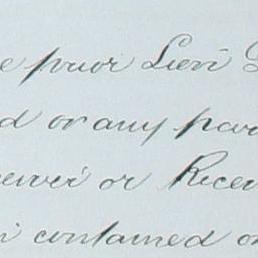 e prior Lien
d or any par
ceiver or Recei
n contained or